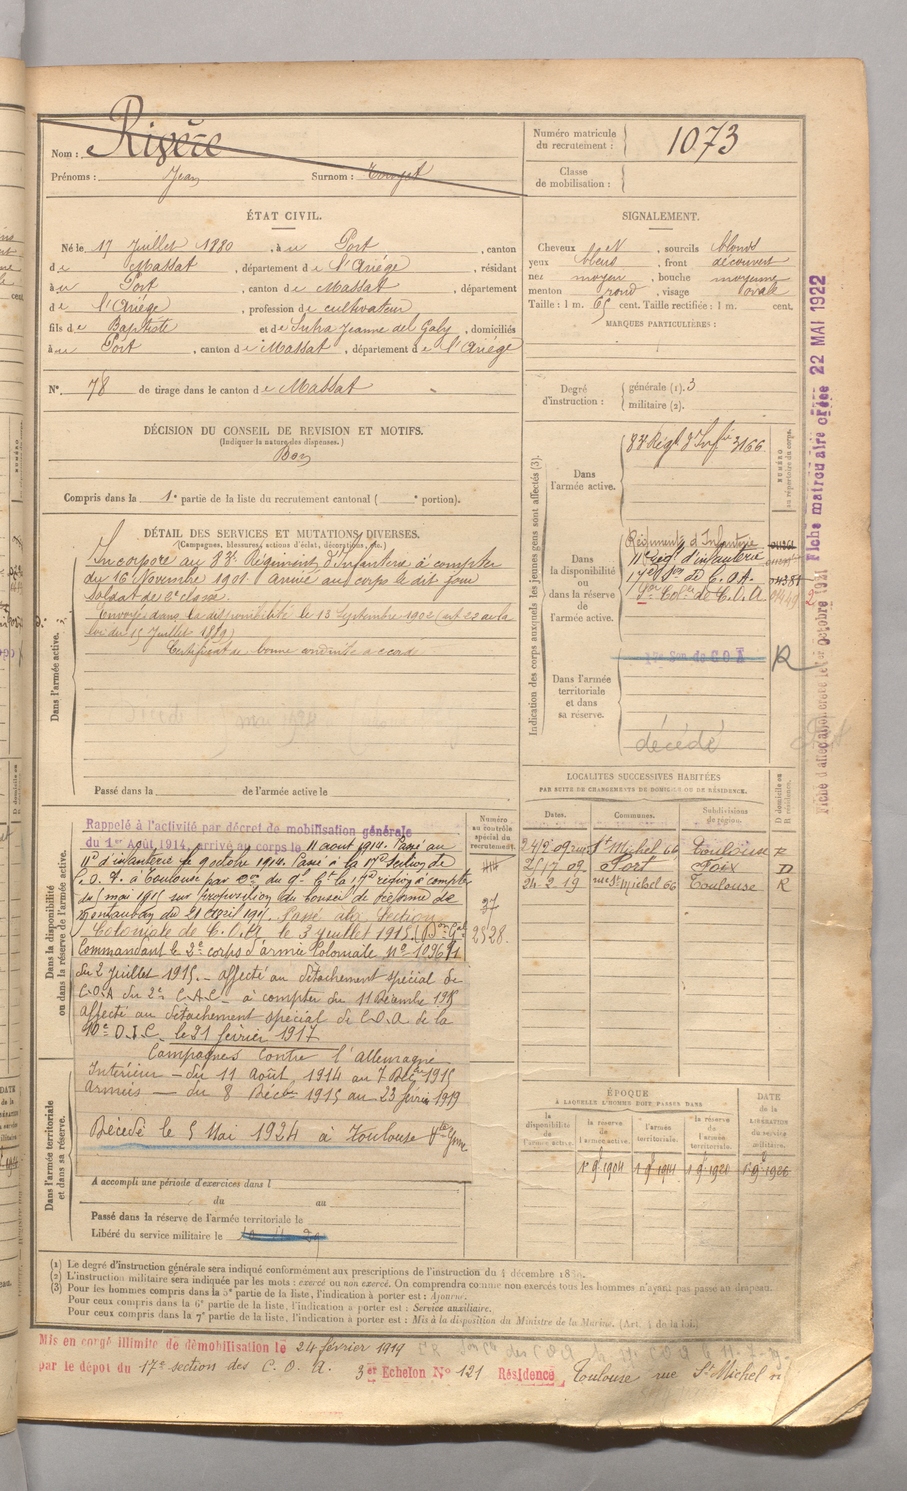 Nom : Rivère
Prénoms : Jean Surnom :
Numéro matricule du recrutement : 1073
Classe de mobilisation :
ÉTAT CIVIL.
Né le 17 Juillet 1880, à u Port, canton
de Massat, département de l'Ariége, résidant
à u Port, canton de Massat, département
de l'Ariége, profession de cultivateur
fils de Baptiste et de Jeanne del Galy, domiciliés
à u Port, canton de Massat, département de l'Ariége
N° 78 de tirage dans le canton de Massat
DÉCISION DU CONSEIL DE REVISION ET MOTIFS.
(Indiquer la nature des dispenses.)
Bon
Compris dans la 1e partie de la liste du recrutement cantonal ( e portion).
SIGNALEMENT.
Cheveux , sourcils blonds
yeux bleus, front découvert
nez moyen, bouche moyenne
menton rond, visage ovale
Taille : 1 m. 65 cent. Taille rectifiée : 1 m. cent.
MARQUES PARTICULIÈRES :
Degré d'instruction : générale (1). 3
militaire (2).
DÉTAIL DES SERVICES ET MUTATIONS DIVERSES.
(Campagnes, blessures, actions d'éclat, décorations, etc.)
Dans l'armée active.
Incorporé au 83e Régiment d'Infanterie à compter
du 16 Novembre 1901. Arrivé au corps le dit jour
soldat de 2e classe.
Envoyé dans la disponibilité le 13 Septembre 1902 (art 22 de la
loi du 15 Juillet 1889)
Certificat de bonne conduite accordé
Passé dans la de l'armée active le
Indication des corps auxquels les jeunes gens sont affectés (3).
NUMÉRO au répertoire du corps.
Dans l'armée active.
83e Régt d'Infie 3166
Dans la disponibilité ou dans la réserve de l'armée active.
Régiment d'Infanterie
11e Régt d'infanterie
17e Son de C.O.A.
Son Colale de C.O.A
Dans l'armée territoriale et dans sa réserve.
17e Son de COA R
décédé
Fiche d'affectation créée le 1er octobre 1921
Fiche matriculaire créée 22 MAI 1922
LOCALITÉS SUCCESSIVES HABITÉES
PAR SUITE DE CHANGEMENTS DE DOMICILE OU DE RÉSIDENCE.
Dates. Communes. Subdivisions de région. D domicile ou R résidence.
rue St Michel 66 Toulouse R
Port Foix D
24 2 19 rue St Michel 66 Toulouse R
Dans la disponibilité ou dans la réserve de l'armée active.
Numéro au contrôle spécial du recrutement.
37
2528.
Rappelé à l'activité par décret de mobilisation générale
du 1er Août 1914, arrivé au corps le 11 aout 1914. Passé au
11e d'infanterie le 9 octobre 1914. Passé à la 17e section de
C.O.A. à Toulouse par du Gl Ct la 17e région à compter
du 1 mai 1915 sur proposition du conseil de Réforme de
Montauban du 21 avril 1915. Passé à la Section
Coloniale de C.O.A. le 3 juillet 1915 (Bon Gal
Commandant le 2e corps d'armée Coloniale No
du 2 Juillet 1915. affecté au détachement spécial de
C.O.A du 2e C.A.C. à compter du 11 Décembre
affecté au détachement spécial de C.O.A de la
10e D.I.C. le 21 février 1917
Campagnes contre l'allemagne
Intérieur - du 11 Août 1914 au 7 Décbre 1915
Armées - du 8 Décbre 1915 au 23 février 1919
Décédé le 5 Mai 1924 à Toulouse Hte Gne
Dans l'armée territoriale et dans sa réserve.
A accompli une période d'exercices dans l
du au
Passé dans la réserve de l'armée territoriale le
Libéré du service militaire le
ÉPOQUE
À LAQUELLE L'HOMME DOIT PASSER DANS
DATE de la LIBÉRATION du service militaire.
la disponibilité de l'armée active. la réserve de l'armée active. l'armée territoriale. la réserve de l'armée territoriale.
1er 9bre 1904 1er 9bre 1914 1er 9bre 1920 1er 9bre 1926
(1) Le degré d'instruction générale sera indiqué conformément aux prescriptions de l'instruction du 4 décembre 1889.
(2) L'instruction militaire sera indiquée par les mots : exercé ou non exercé. On comprendra comme non exercés tous les hommes n'ayant pas passé au drapeau.
(3) Pour les hommes compris dans la 5e partie de la liste, l'indication à porter est : Ajourné.
Pour ceux compris dans la 6e partie de la liste, l'indication à porter est : Service auxiliaire.
Pour ceux compris dans la 7e partie de la liste, l'indication à porter est : Mis à la disposition du Ministre de la Marine. (Art. 4 de la loi.)
Mis en congé illimité de démobilisation le 24 février 1919
par le dépot du 17e section des C. O. A. 3e Echelon No 121 Résidence Toulouse rue St Michel